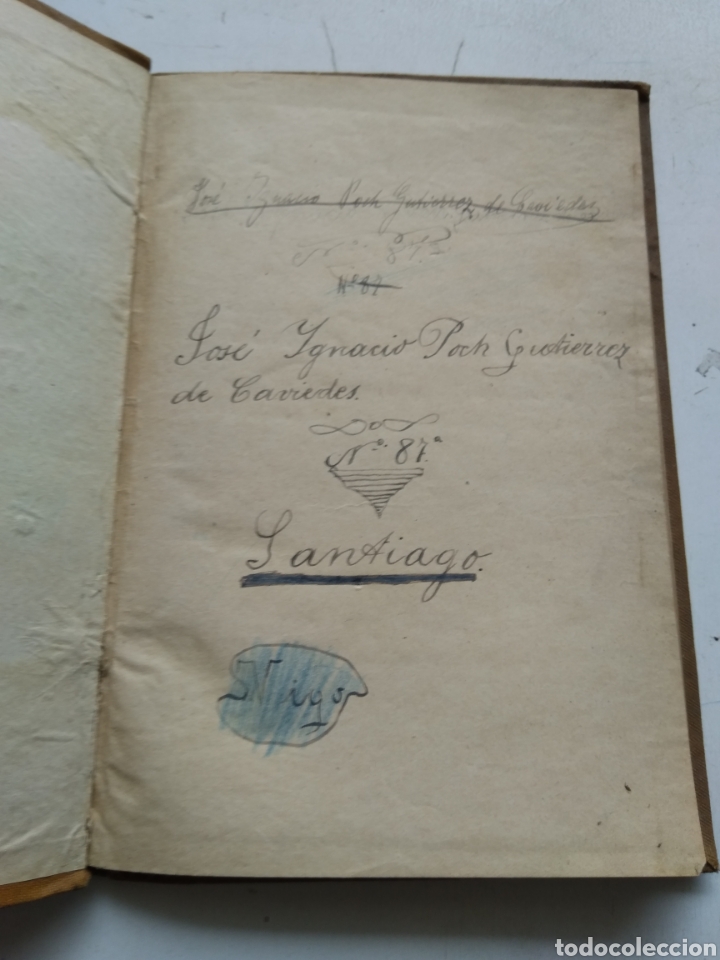 José Ygnacio Poch Gutierrez de Caviedes
Nº 87
Nº 87
José Ygnacio Poch Gutierrez
de Caviedes.
Nº. 87ª
Santiago.
Vigo
todocoleccion